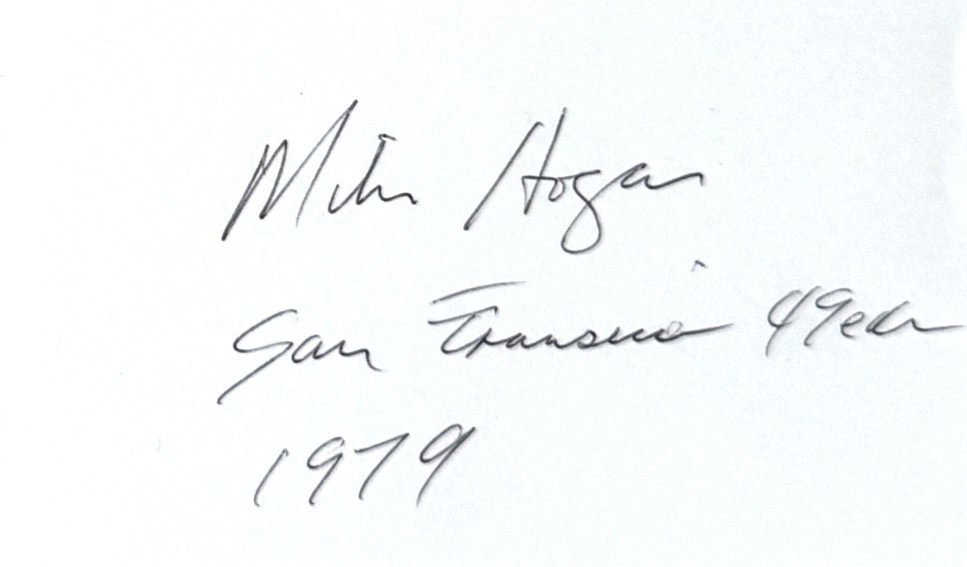 Mike Hogan
San Fransisco 49er
1979